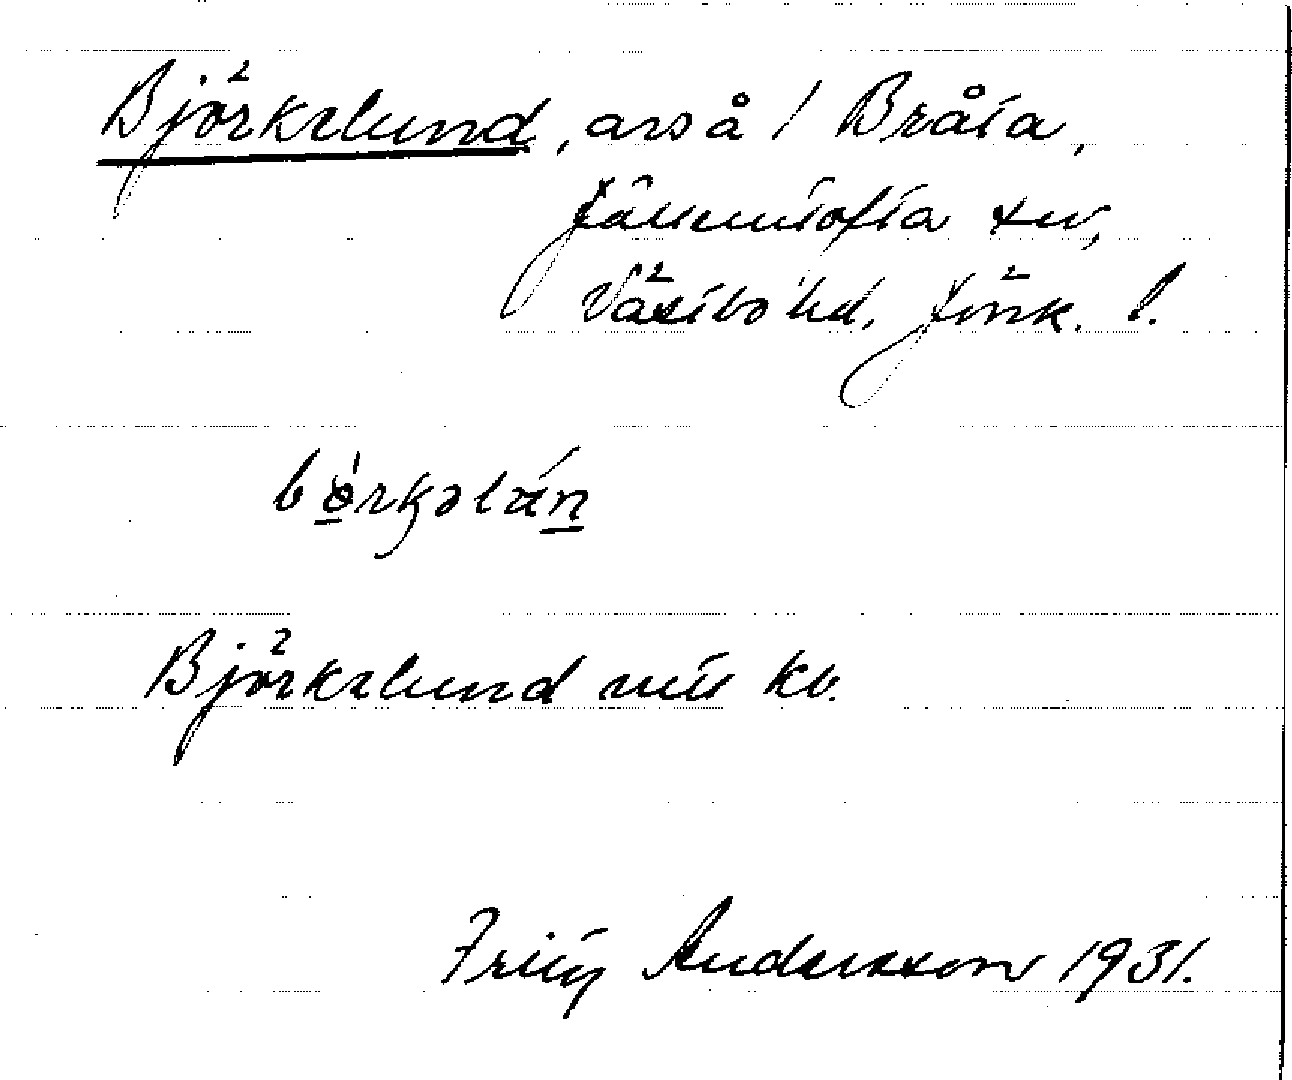 Björkelund, avs å / Bråta,
Jälluntofta sn,
Västbo hd, Jönk. l.
bǿrkəlán
Björkelund utt kv.
Fritz Andersson 1931.